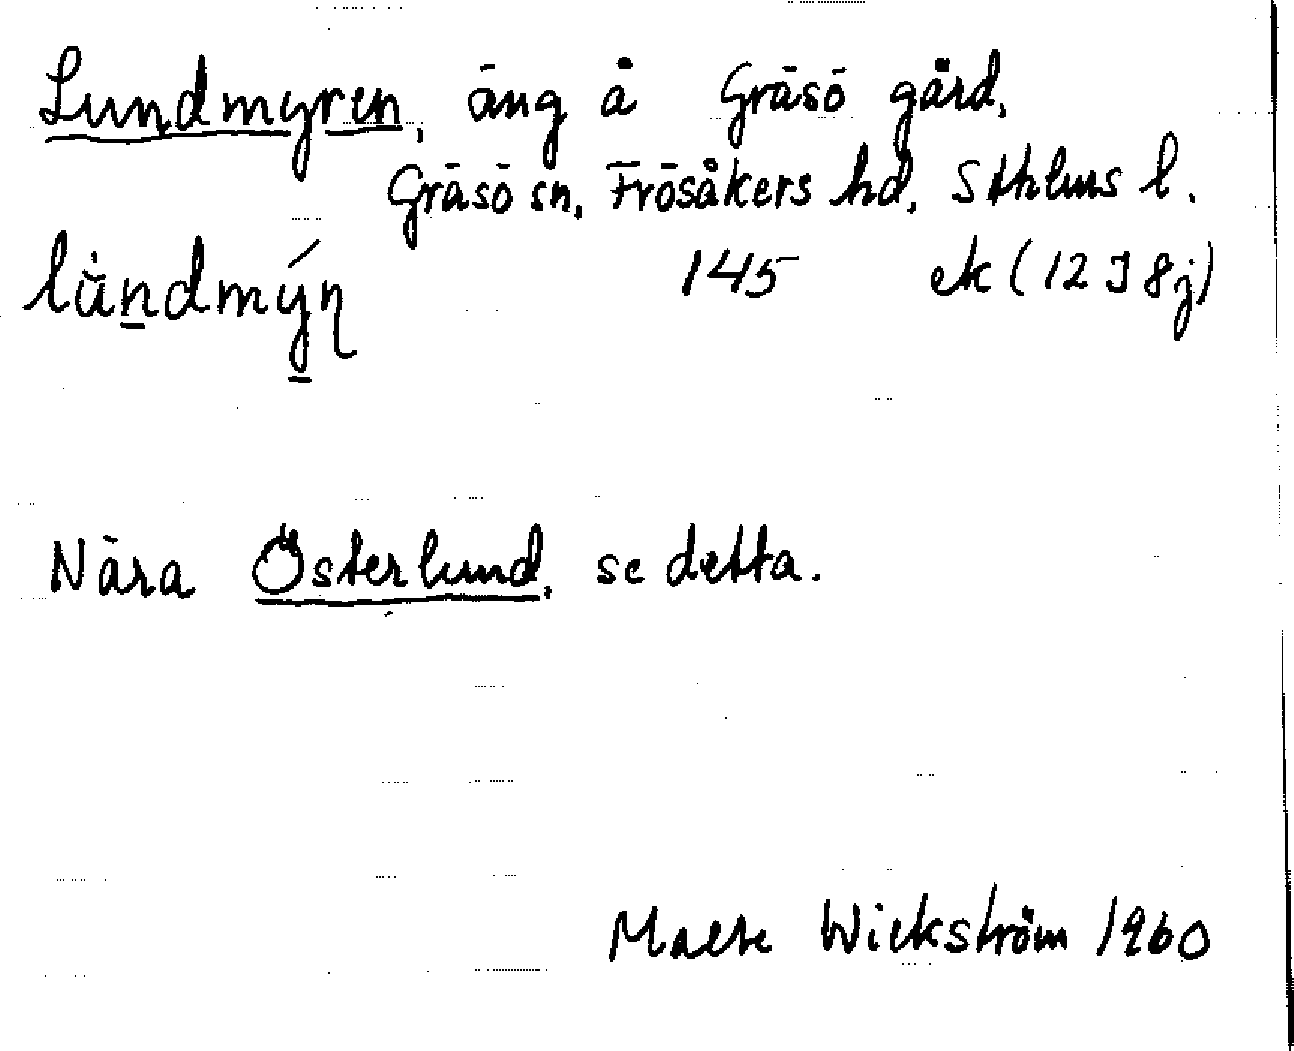 Lundmyren, äng å Gräsö gård,
Gräsö sn, Frösåkers hd, Sthlms l.
lu̇̀ndmýn 145 ek (12 I 8 j)
Nära Österlund, se detta.
Malte Wickström 1960